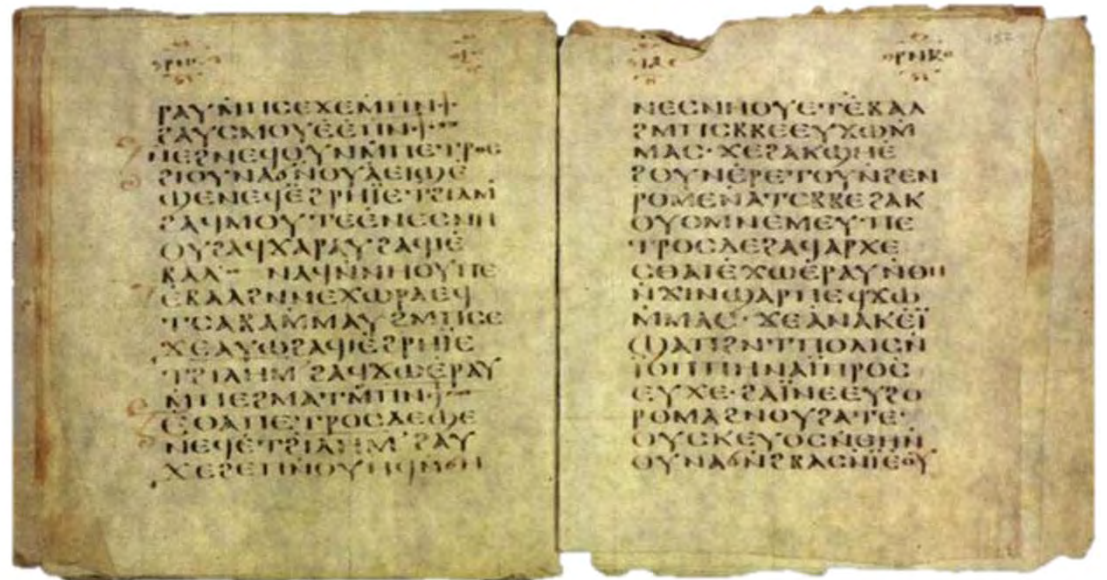 ⲣⲁⲩⲙⲡⲥⲉϫⲉⲙⲡⲛϯ·
ϩⲁⲩⲥⲙⲟⲩⲉⲉⲡⲛϯ·
ⲛⲉϩⲛⲉϥⲟⲩⲛⲙⲡⲉⲧⲣⲟⲥ
ϩⲓⲟⲩⲛⲁϭⲛⲟⲩⲁⲉⲓϣⲉ
ϣⲉⲛⲉϥⲉ̇ϩⲣⲏⲓ̈ⲉⲧϩⲓⲗⲏⲙ
ϩⲁϥⲙⲟⲩⲧⲉⲉ̇ⲛⲉⲥⲛⲏ
ⲟⲩϩⲁϥϫⲁⲣⲁⲩϩⲁϥⲓⲉ̇
ⲃⲁⲗ ⲛⲁϥⲛⲛⲏⲟⲩⲡⲉ
ⲉ̇ⲃⲁⲗϩⲛⲛⲉⲭⲱⲣⲁⲉϥ
ⲧⲥⲁⲃⲁⲙ̇ⲙⲁⲩϩⲙⲡⲥⲉ
ϫⲉⲁⲩⲱϩⲁϥⲓⲉ̇ϩⲣⲏⲓ̈ⲉ
ⲧϩⲓⲗⲏⲙ ϩⲁϥϫⲱⲉ̇ⲣⲁⲩ
ⲙ̇ⲡⲉϩⲙⲁⲧⲙ̇ⲡⲛϯ·
ϩⲟⲁⲡⲉⲧⲣⲟⲥⲇⲉϣⲉ
ⲛⲉϥⲉ̇ⲧϩⲓⲗⲏⲙ ϩⲁⲩ
ⲣⲛⲃ
ⲛⲉⲥⲛⲏⲟⲩⲉⲧⲉ̇ⲃⲁⲗ
ϩⲙⲡⲥⲃⲃⲉⲉⲩϫⲱⲙ̇
ⲙⲁⲥ· ϫⲉϩⲁⲕϣⲏⲉ̇
ϩⲟⲩⲛⲉ̇ⲣⲉⲧⲟⲩⲛϩⲉⲛ
ⲣⲟⲙⲉⲛ̇ⲁⲧⲥⲃⲃⲉϩⲁⲕ
ⲟⲩⲟⲙⲛⲉⲙⲉⲩ ⲡⲉ
ⲧⲣⲟⲥⲇⲉϩⲁϥⲁⲣⲭⲉ
ⲥⲑⲁⲓⲉ̇ϫⲱⲉ̇ⲣⲁⲩⲛϩⲱ
ⲛ̇ϫⲓⲛϣⲁⲣⲡⲉϥϫⲱ
ⲙ̇ⲙⲁⲥ· ϫⲉⲁ̇ⲛⲁⲕⲉⲓ̈
ϣⲁⲡϩⲛⲧⲡⲟⲗⲓⲥⲛ̇
ⲓ̈ⲟⲡⲡⲏⲛⲁⲓ̈ⲡⲣⲟⲥ
ⲉⲩⲭⲉ· ϩⲁⲓ̈ⲛⲉⲉⲩϩⲟ
ⲣⲟⲙⲁϩⲛⲟⲩϩⲁⲧⲉ·
ⲟⲩⲥⲕⲉⲩⲟⲥⲛ̇ⲑⲏ
ⲟⲩⲛⲁϭⲛ̇ϩⲃⲁⲥⲛ̇ⲓ̈ⲉⲟⲩ